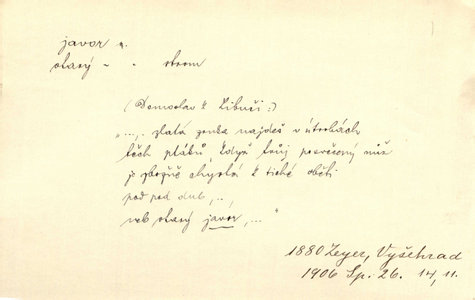 javor m.
starý - - strom
(Domoslav k Libuši:)
"..., zlatá zrnka najdeš v útrobách
těch ptáků, když tvůj posvěcený nůž
je zbožně chystá k tiché oběti
pod dub, ..,
neb starý javor, ..."
1880 Zeyer, Vyšehrad
1906 Sp. 26. 14, 11.